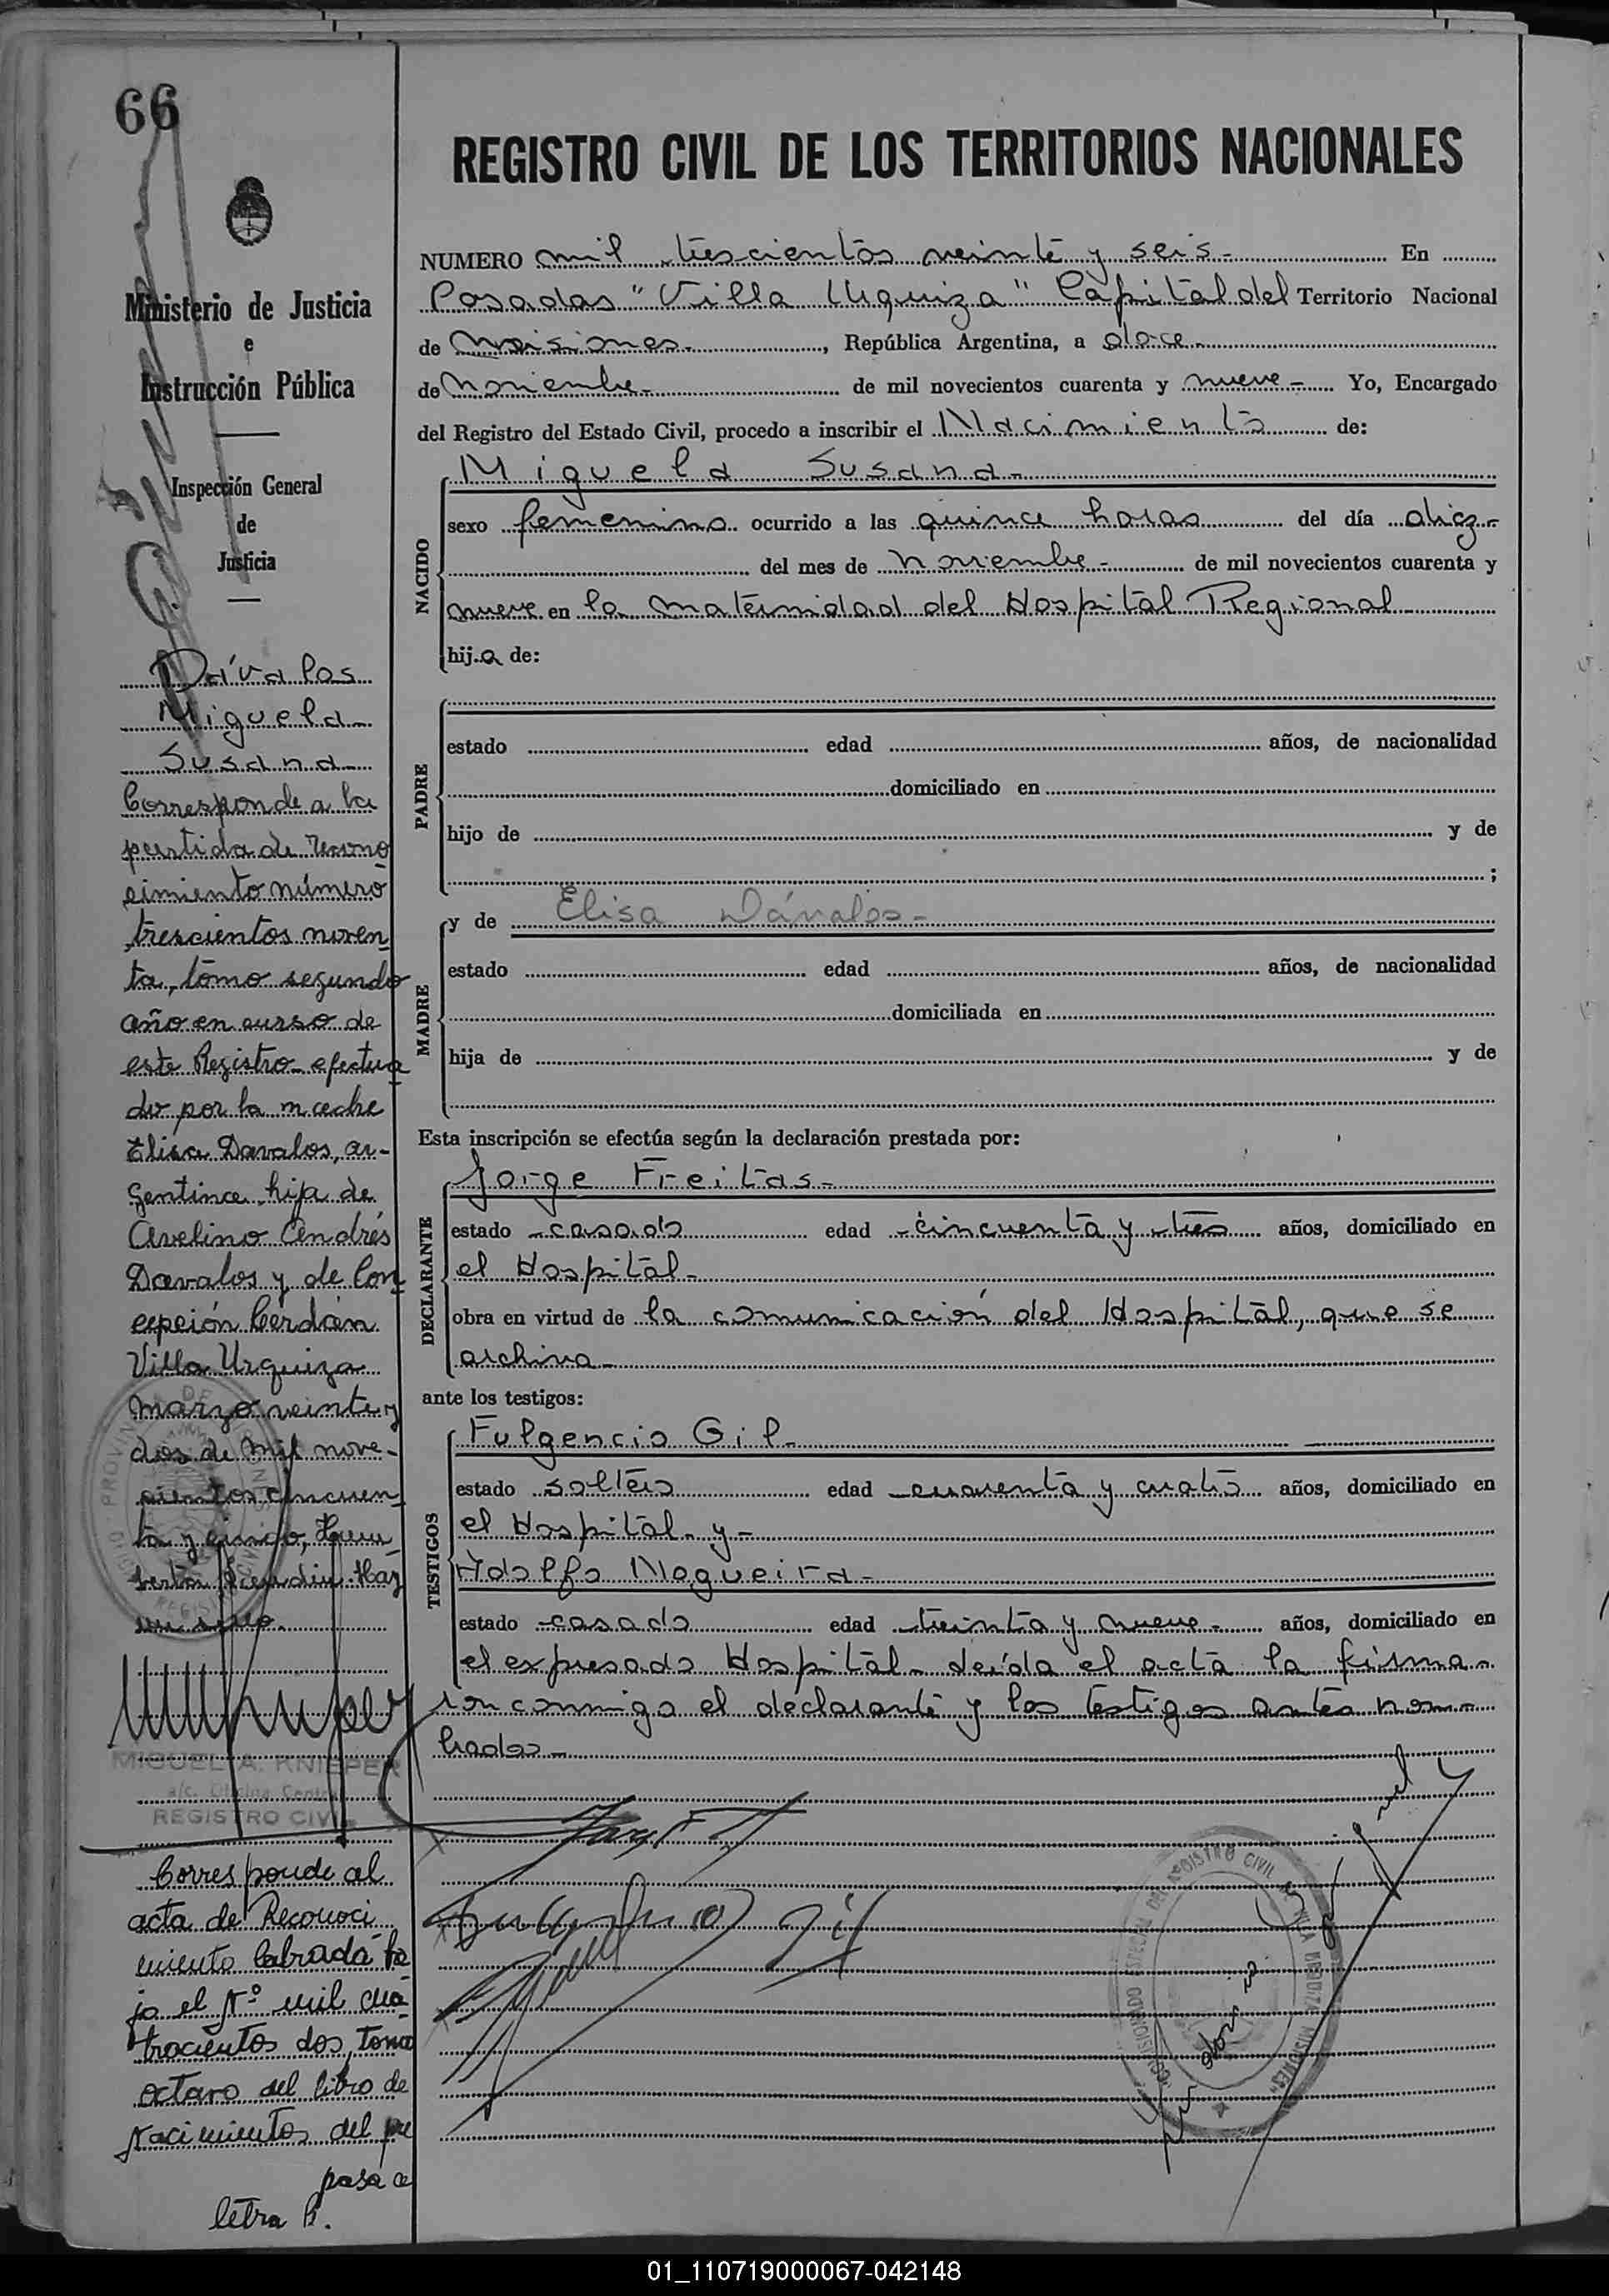 66
Ministerio de Justicia
e
Instrucción Pública
Inspección General
de
Justicia
Dávalos
Miguela
Susana
Corresponde a la
partida de recono
cimiento número
trescientos noven
ta, tomo segundo
año en curso de
este Registro efectua
do por la madre
Elisa Davalos, ar-
gentina hija de
Avelino Andrés
Davalos y de Con
cepción Cerdán
Villa Urquiza
marzo veinte y
dos de mil nove-
cientos cincuen
ta y cinco,
MIGUEL A. KNIEPER
a/c. Oficina Central
REGISTRO CIVIL
Corresponde al
acta de Reconoci
miento labrada ba
jo el Nº mil cua
trocientos dos, tomo
octavo del libro de
nacimientos del pre
pasa a
letra B.
REGISTRO CIVIL DE LOS TERRITORIOS NACIONALES
NUMERO mil trescientos veinte y seis.- En
Posadas "Villa Urquiza" Capital del Territorio Nacional
de Misiones.-, República Argentina, a doce.-
de Noviembre.- de mil novecientos cuarenta y nueve.- Yo, Encargado
del Registro del Estado Civil, procedo a inscribir el Nacimiento de:
NACIDO
Miguela Susana.-
sexo femenino ocurrido a las quince horas del día diez.-
del mes de Noviembre.- de mil novecientos cuarenta y
nueve en la maternidad del Hospital Regional
hija de:
PADRE
estado edad años, de nacionalidad
domiciliado en
hijo de y de
;
MADRE
y de Elisa Dávalos.-
estado edad años, de nacionalidad
domiciliada en
hija de y de
Esta inscripción se efectúa según la declaración prestada por:
DECLARANTE
Jorge Freitas.-
estado casado edad cincuenta y tres años, domiciliado en
el Hospital.-
obra en virtud de la comunicación del Hospital, que se
archiva.-
ante los testigos:
TESTIGOS
Fulgencio Gil.-
estado soltero edad cuarenta y cuatro años, domiciliado en
el Hospital. y-
Adolfo Nogueira.-
estado casado edad treinta y nueve.- años, domiciliado en
el expresado Hospital. Leída el acta la firma-
ron conmigo el declarante y los testigos antes nom-
brados.-
Fulgencio Gil
01_110719000067-042148